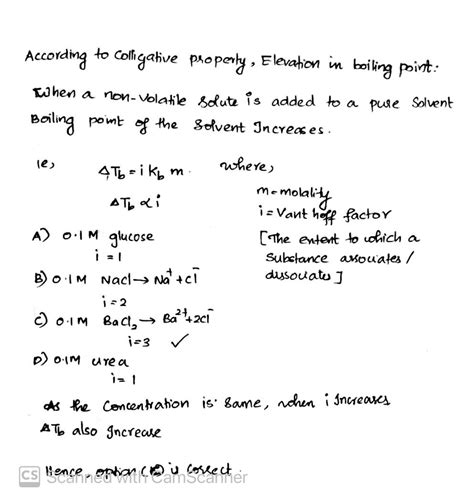 According to Colligative property, Elevation in boiling point:
When a non-volatile solute is added to a pure Solvent
Boiling point of the Solvent Increases.
ie, ΔTb = i Kb m. where,
m = molality
ΔTb ∝ i
i = Vant hoff factor
A) 0.1 M glucose
[The extent to which a
i = 1
substance associates /
B) 0.1 M Nacl → Na⁺ + cl⁻
dissociates]
i = 2
C) 0.1 M BaCl₂ → Ba²⁺ + 2cl⁻
i = 3 ✓
D) 0.1M urea
i = 1
As the Concentration is same, when i Increases
ΔTb also Increase
Hence, option is correct.
CS Scanned with CamScanner